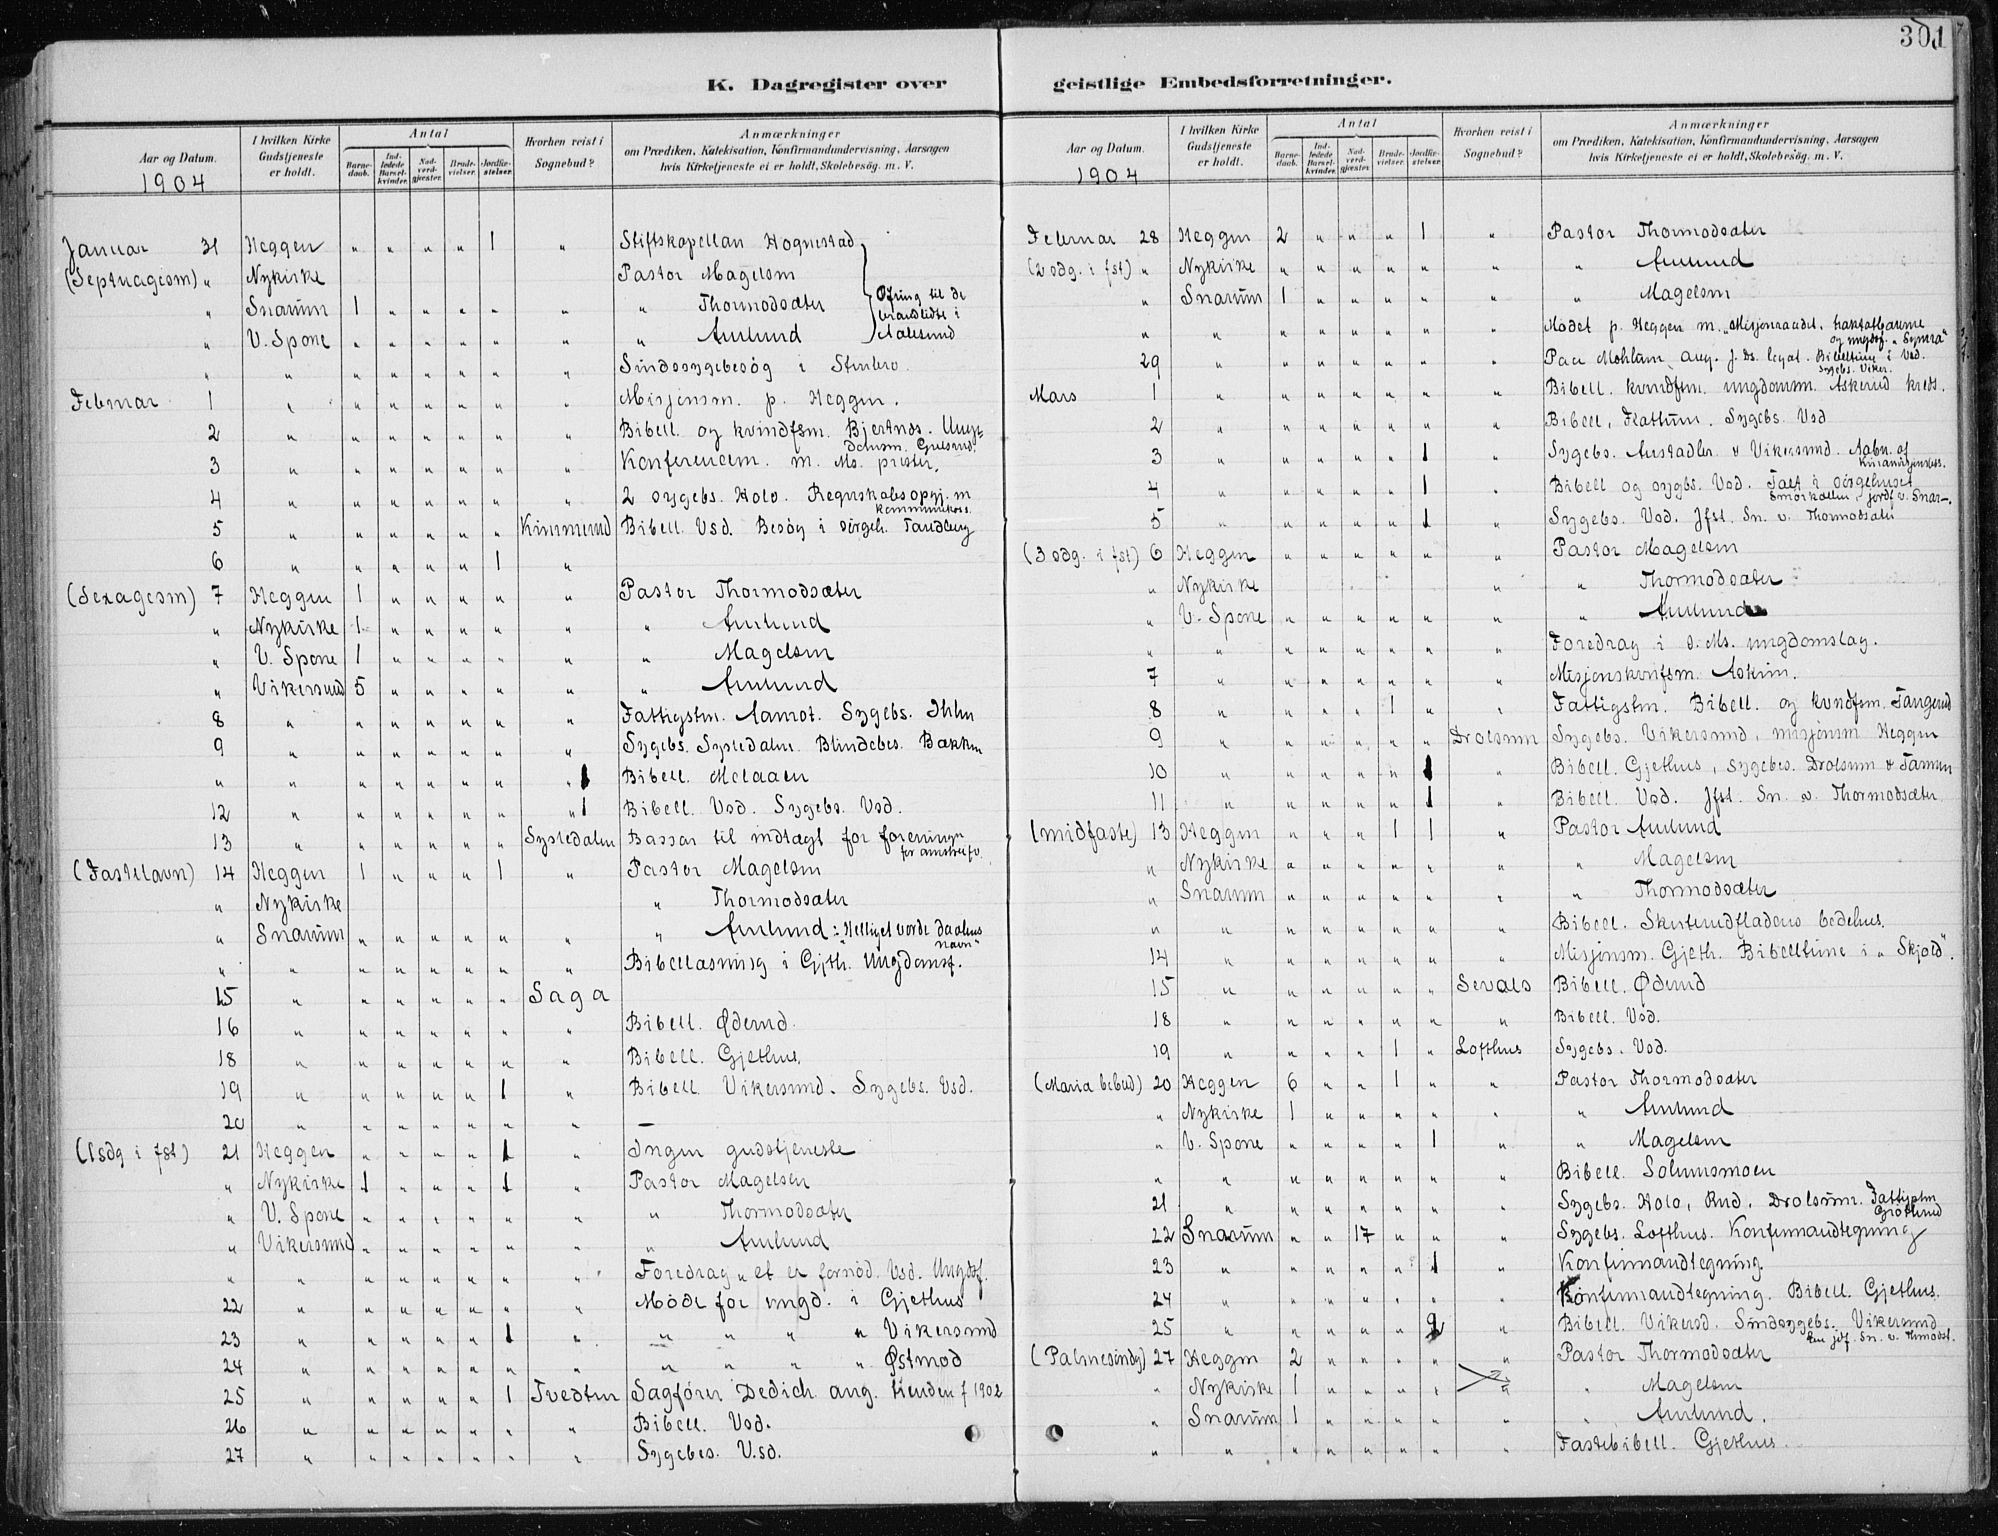 301
K. Dagregister over geistlige Embedsforretninger.
Aar og Datum. I hvilken Kirke Gudstjeneste er holdt. Antal Barnedaab. Indledede Barselkvinder. Nadverdgjæster. Brudevielser. Jordfæstelser. Hvorhen reist i Sognebud? Anmærkninger om Prædiken, Katekisation, Konfirmandundervisning, Aarsagen hvis Kirketjeneste ei er holdt, Skolebesög. m. V.
1904
Januar 31 Heggen " " " " 1 " Stiftskapellan Hognestad
(Septuagesm) " Nykirke Pastor Magelsen
" Snarum 1 " " " " " " Thormodsæter
Ofring til de brandlidte i Aalesund
" V. Spone " " " " " " " Amlund
" " " " " " " " Sindssygebesög i Stenbro.
Februar 1 " " " " " " " Misjonsm. p. Heggen.
2 " " " " " " " Bibell. og kvindfsm. Bjertnæs. Ungdomsm. Gulsrud.
3 " " " " " " " Konferencem. m. Ms. prester.
4 " " " " " " " 2 sygebs. Holo. Regnskabsopgj. m kommunekass.
5 " " " " " " Kimmerud Bibell. Vsd. Besög i sörgeh. Tandberg
6 " " " " " 1 "
(Sexagesm) 7 Heggen 1 " " " " " Pastor Thormodsæter
" Nykirke 1 " " " " " " Amlund
" V. Spone 1 " " " " " " Magelsen
" Vikersund 5 " " " " " " Amlund
8 " " " " " " " Fattigstm. Aamot. Sygebs. Ihlen
9 " " " " " " " Sygebs. Systedalen. Blindebes. Bækken
" " " " " " " " 1 Bibell. Melaaen
12 " " " " " " " 1 Bibell. Vsd. Sygebs. Vsd.
13 " " " " " " Systedalen Bassar til indtægt for foreningen for arnstreifv.
(Fastelavn) 14 Heggen 1 " " " 1 " Pastor Magelsen
" Nykirke " Thormodsæter
" Snarum " " " " " " " Amlund: "Helliget vorde dashus navn"
" " " " " " " " Bibellæsning i Gjeth. Ungdomsf.
15 " " " " " " Saga
16 " " " " " " " Bibell. Øderud.
18 " " " " " " " Bibell. Gjethus.
19 " " " " " 1 " Bibell Vikersund. Sygebs. Vsd.
20 " " " " " " " —
(1 sdg i fst) 21 Heggen " " " " 1 " Ingen gudstjeneste
" Nykirke 1 " " " 1 " Pastor Magelsen
" V. Spone " " " " " " " Thormodsæter
" Vikersund " " " " " " " Amlund
" " " " " " " " Foredrag "et er fornöd. Vsd. Ungdsf.
22 " " " " " " " Möde for ungd. i Gjethus
23 " " " " " 1 " " " " " Vikersund
24 " " " " " " " " " " " Østmod
25 " " " " " 1 Tvedten Sagförer Dedich ang. tienden f 1902
26 " " " " " " " Bibell. Vsd.
27 " " " " " " " Sygebes. V.sd.
Aar og Datum. I hvilken Kirke Gudstjeneste er holdt. Antal Barnedaab. Indledede Barselkvinder. Nadverdgjæster. Brudevielser. Jordfæstelser. Hvorhen reist i Sognebud? Anmærkninger om Prædiken, Katekisation, Konfirmandundervisning, Aarsagen hvis Kirketjeneste ei er holdt, Skolebesög. m. V.
1904
Februar 28 Heggen 2 " " " 1 " Pastor Thormodsæter
(2 sdg. i fst) " Nykirke " " " " " " " Amlund
" Snarum 1 " " " " " " Magelsen
" " " " " " " " Mödet p. Heggen m. "Misjonraadet, traktatbarnene og ungdsf. "Symra"
29 " " " " " " " Paa Mohlum ang. J. Ds. legat. Bibeltime i Vsd. Sygebs. Viker.
Mars 1 " " " " " " " Bibell. kvindfsm. ungdomsm. Askerud kreds.
2 " " " " " " " Bibell, Flattum. Sygebs. Vsd
3 " " " " " 1 " Sygebs. Austadler & Vikersund. Aabn. af Kinamisjonsless.
4 " " " " " 1 " Bibell og sygbs. Vsd. Talt i sörgehuset Smörkollen, jordf v. Snar—.
5 " " " " " 1 " Sygebs. Vsd. Jfst. Sn. v. Thormodsæter
(3 sdg. i fst) 6 Heggen " " " " " " Pastor Magelsen
" Nykirke " " Thormodsæter
" V. Spone " " " " " " " Amlund
" " " " " " " " Foredrag i s. Ms. ungdomslag.
7 " " " " " " " Misjonskvnfsm. Askim.
8 " " " " 1 " " Fattigstm. Bibell. og kvndfsm. Tangerud
9 " " " " " " Drolsum Sygebs. Vikersund, misjonsm Heggen
10 " " " " " 1 " Bibell. Gjethus, Sygebes. Drolsum & Tamen
11 " " " " " 1 " Bibell. Vsd. Jfst. Sn. v. Thormodsæter
(midfaste) 13 Heggen " " " 1 1 " Pastor Amlund
" Nykirke " " " " " " " Magelsen
" Snarum " " " " " " " Thormodsæter
" " " " " " " " Bibell. Skuterudfladens bedehus.
14 " " " " " " " Misjonsm. Gjeth. Bibelltime i "Skjold".
15 " " " " " " Sevals Bibell. Øderud
18 " " " " " " " Bibell. Vsd.
19 " " " " 1 " Lofthus Sygebs. Vsd.
(Maria bebud) 20 Heggen 6 " " 1 " " Pastor Thormodsæter
" Nykirke 1 " " " " " " Amlund
" V. Spone " " " " 1 " " Magelsen
" " " " " " " " Bibell. Solumsmoen
21 " " " " " " " Sygebs. Holo, Rud, Drolsum. Fattigstm
22 Snarum " " 17 " " " Sygebs. Lofthus. Konfirmandtegning
23 " " " " " 1 " Konfirmandtegning.
24 " " " " " " " Konfirmandtegning. Bibell. Gjethus.
25 " " " " " 2 " Bibell. Vikersd. Sindssygebs. Vikersund Den jdf. Sn. v. Thmodst.
(Palmesöndg) 27 Heggen 2 " " " " " Pastor Thormodsæter
" Nykirke 1 " " " " " " Magelsen
" Snarum 1 " " " " " Amlund.
" " " " " " " " Fastebibell. Gjethus.